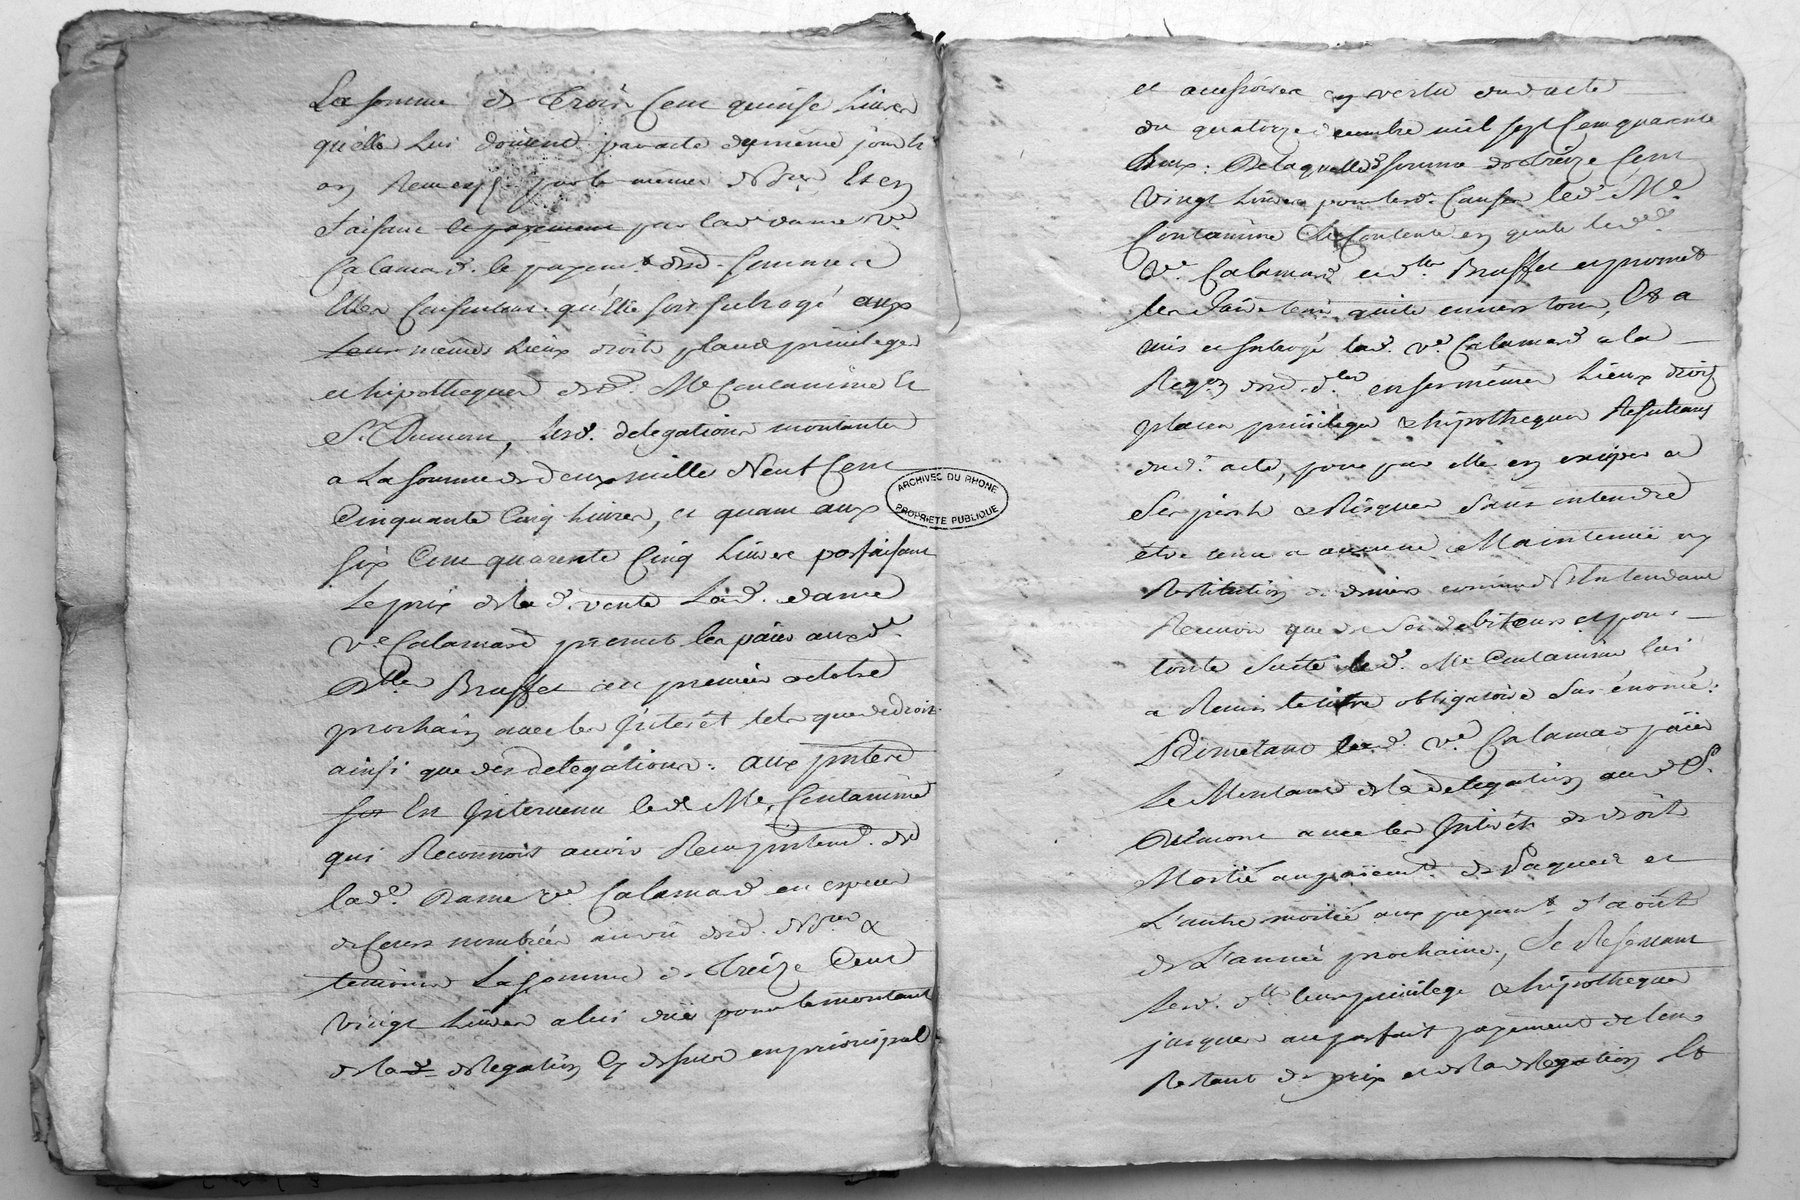 La somme de Trois Cent quinse Livres
quelles Lui doivent par acte du même jour Et
par le même Et en
faisant le payement par lad dame Ve
Calamard le payemt. desd. sommes
Elles Consentent qu'Elle soit subrogé aux
leur mêmes Lieux droits place privileges
et hipotheques dud. Me Contamine Et
Sr. Dumont, Lesd. delegations montantes
a La somme de deux mille Neuf Cent
Cinquante Cinq Livres, et quant aux
six Cent quarente Cinq Livres parfaisant
Le prix de la d. vente Lad. dame
Ve Calamard promet les païer auxd.
Dlles Bruffet au premier octobre
prochain avec les Interêt tels que de droit
ainsi que des delegations. aux
Est Intervenu led Me. Contamine
qui Reconnoit avoir Reçu de
lad. Dame Ve Calamard en especes
de Cours nombrées au vû desd. Nres &
temoins La somme de Treize Cent
Vingt Livres a lui dûe pour le montant
de la d. delegation Cy dessus en principal
et accessoires en vertu dud acte
du quatorze decembre mil sept Cent quarente
Deux. De laquelle somme de treize Cent
Vingt Livres pour lesd. Causes led. Me.
Contamine Se Contente en quite lesd.
Ve. Calamard et dlles Bruffet et promet
les faire tenir quite envers tous, Et a
mis et subrogé lad. Ve. Calamard a la
Reqon desd. dlles en ses mêmes Lieux droits
places privileges & hipotheques Resultans
dud. acte, pour par elle en exiger a
Ses perils & Risques Sans entendre
être tenu a aucune Maintenüe ny
Restitution de deniers entendant
Recevoir que de ses debiteurs et pour
toute sureté led. Me Contamine lui
a Remis le titre obligatoire sus énoncé.
Promettant lad. Ve. Calamard païer
Le Montant de la delegation aud Sr.
Dumont avec les Interêts de droit
Moitié au païemt. de Paques et
L'autre moitié aux payemt. d'août
de L'année prochaine, Se Reservant
lesd. dlles leurs privilege & hipotheques
jusques au parfait payement de leur
Restant de prix et de la delegation Et
ARCHIVES DU RHONE
PROPRIETE PUBLIQUE